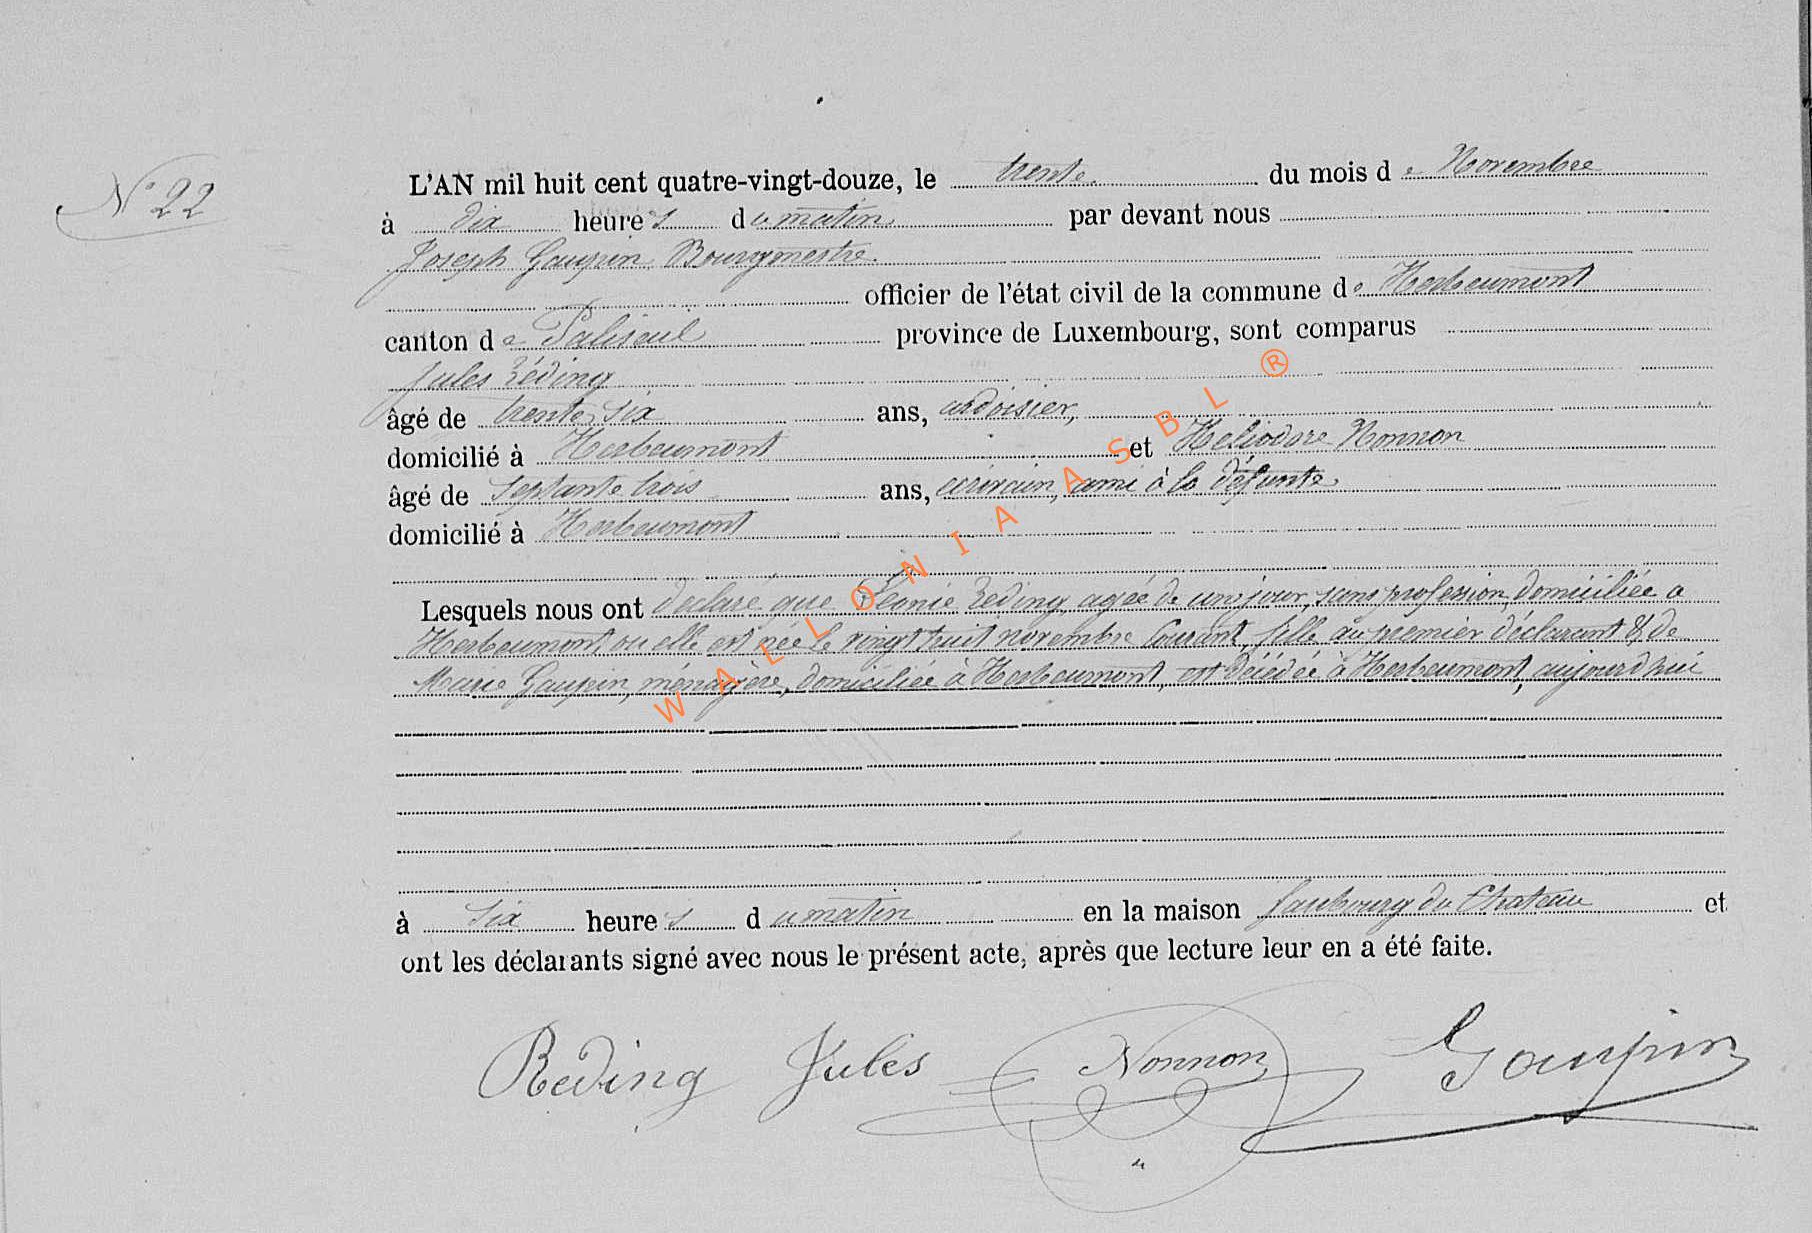 N° 22
L'AN mil huit cent quatre-vingt-douze, le trente du mois de Novembre
à dix heures du matin par devant nous
Joseph Goupin Bourgmestre
officier de l'état civil de la commune de Herbeumont
canton de Paliseul province de Luxembourg, sont comparus
Jules Réding
âgé de trente six ans, ardoisier,
domicilié à Herbeumont et Héliodore Nonnon
âgé de septante trois ans, écrivain, ami à la défunte
domicilié à Herbeumont
Lesquels nous ont déclaré que Léonie Reding agée de un jour, sans profession, domiciliée a
Herbeumont, ou elle est née le vingt huit novembre Courant, fille au premier déclarant & de
Marie Goupin, ménagère, domiciliée à Herbeumont, est décédée à Herbeumont, aujourd'hui
à six heures du matin en la maison faubourg du Chateau et
ont les déclarants signé avec nous le présent acte, après que lecture leur en a été faite.
Reding Jules Nonnon Goupin
WALLONIA ASBL ®